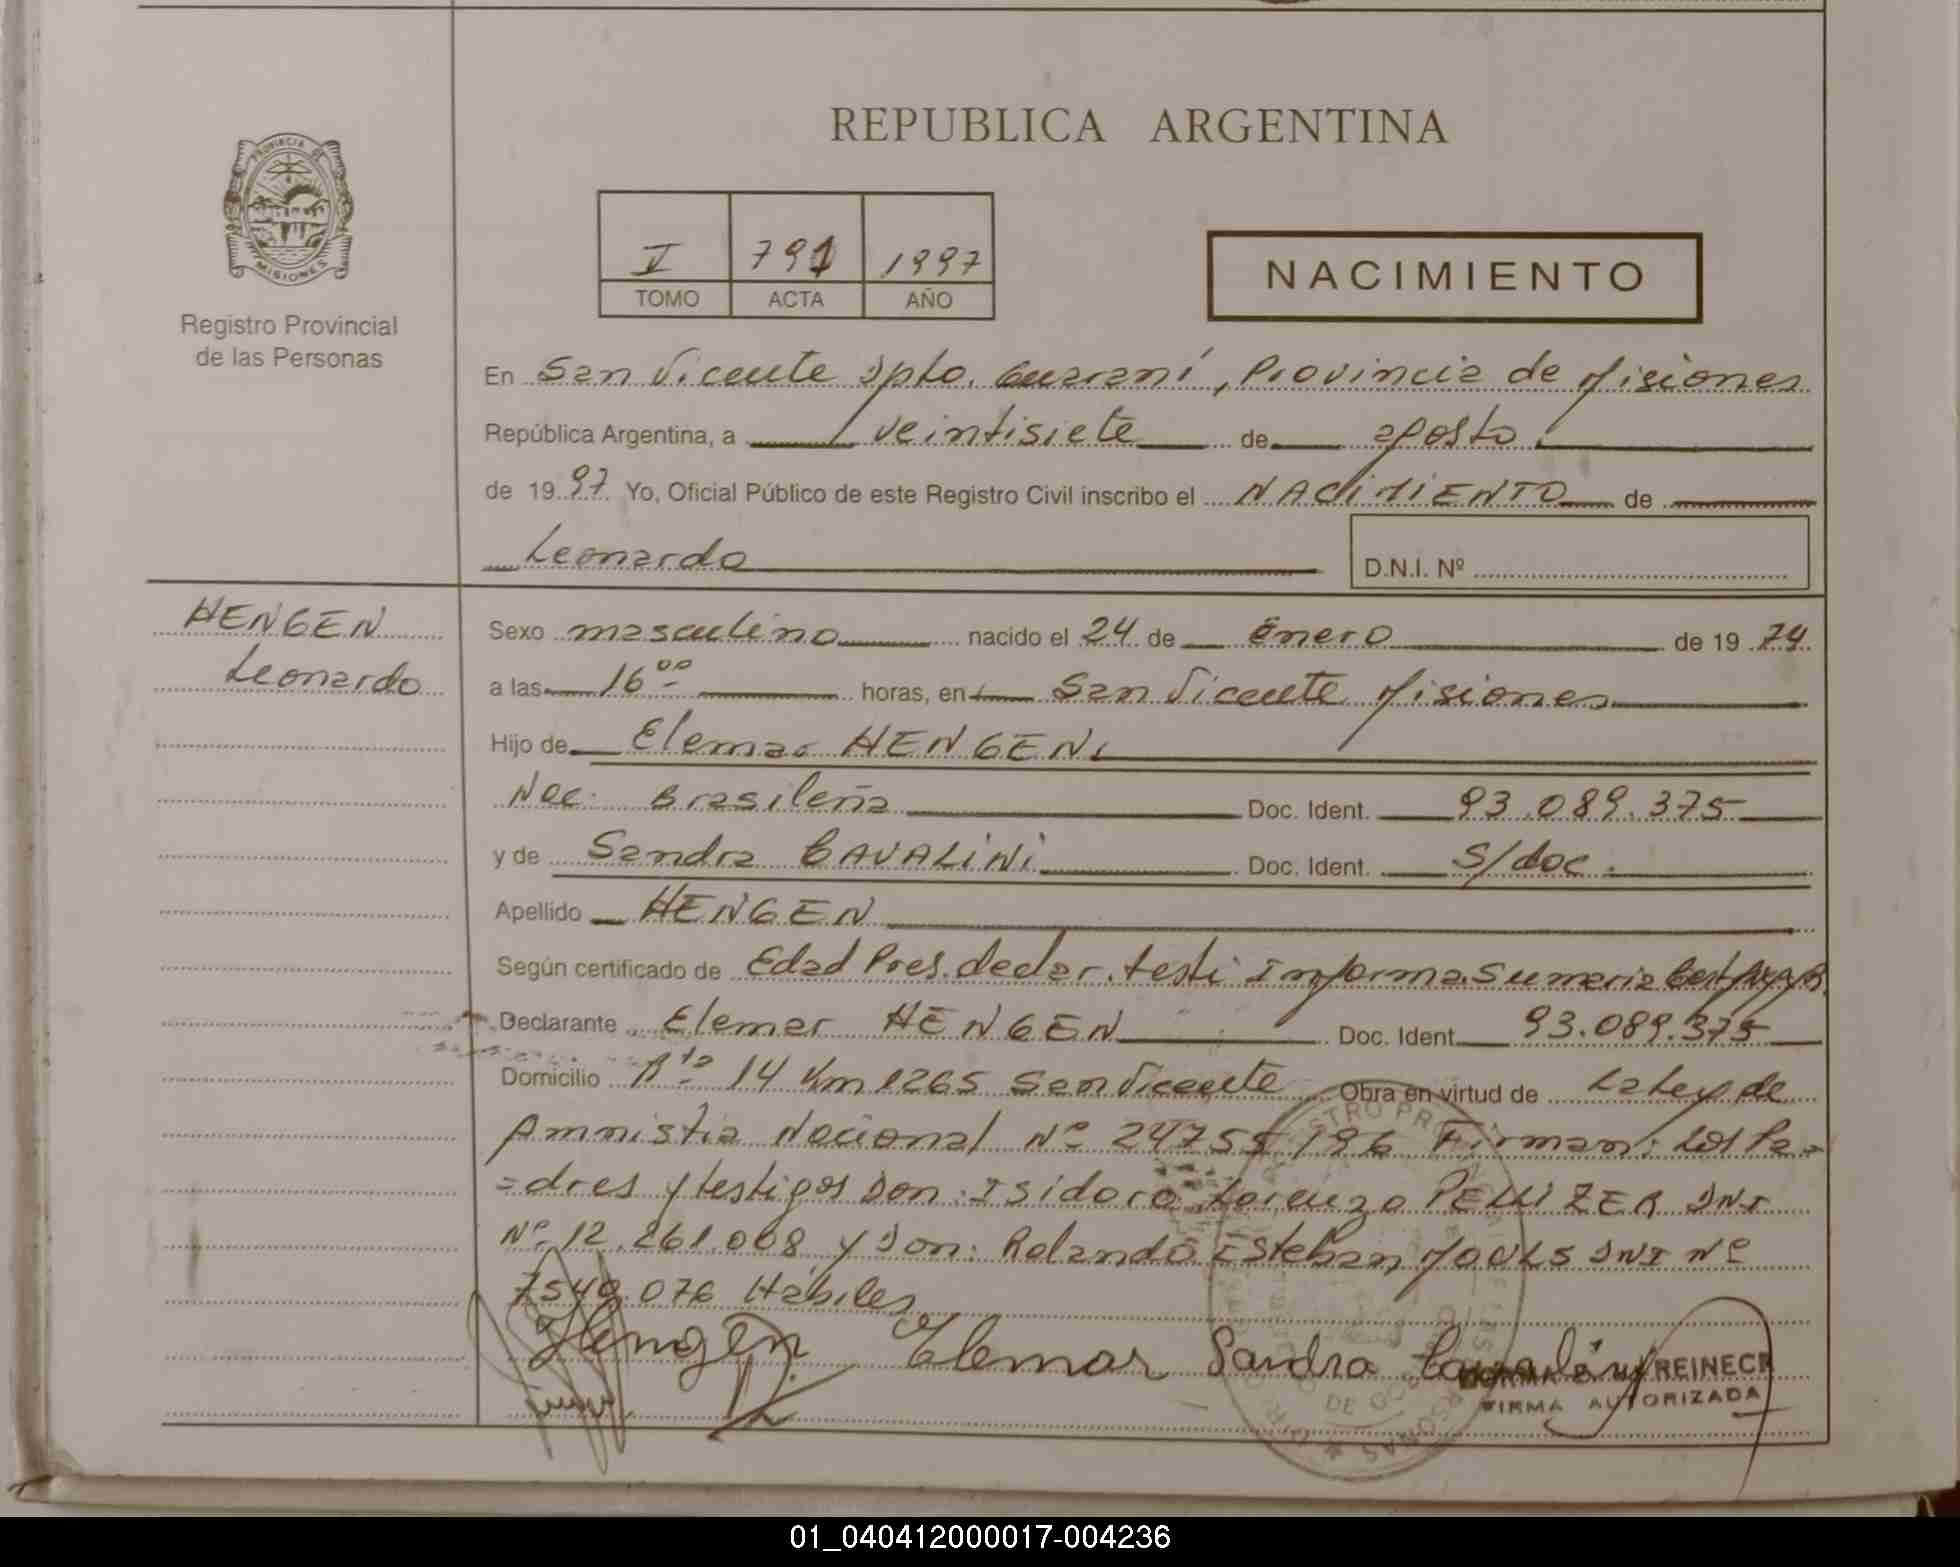 REPUBLICA ARGENTINA
PROVINCIA DE
MISIONES
Registro Provincial
de las Personas
V 791 1997
TOMO ACTA AÑO
NACIMIENTO
En San Vicente Dpto. Guaraní, Provincia de Misiones
República Argentina, a veintisiete de agosto
de 1997 Yo, Oficial Público de este Registro Civil inscribo el NACIMIENTO de
Leonardo
D.N.I. Nº
HENGEN
Leonardo
Sexo masculino nacido el 24 de Enero de 1974
a las 16 00 horas, en San Vicente Misiones
Hijo de Elemar HENGEN
Nac. Brasileña Doc. Ident. 93.089.375
y de Sandra CAVALINI Doc. Ident. S/doc.
Apellido HENGEN
Según certificado de Edad Pres. declar. testi Informa. Sumaria
Declarante Elemar HENGEN Doc. Ident. 93.089.375
Domicilio Rta 14 Km 1265 San Vicente Obra en virtud de La Ley de
Amnistia Nacional Nº 24755/96 Firman: Los Pa=
=dres y testigos Don: Isidoro Lorenzo PELLIZER DNI
Nº 12.261.008 y Don: Rolando Esteban MOULS DNI Nº
7549.076 Hábiles
Hengen Elemar Sandra
REINECK
FIRMA AUTORIZADA
01_040412000017-004236